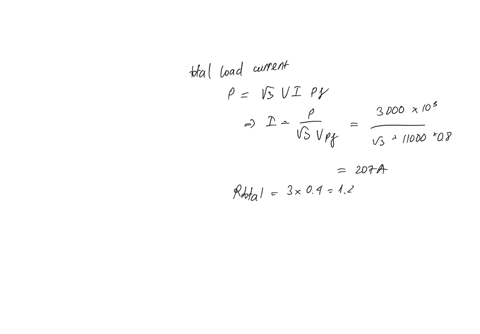 total load current
P = √3 V I Pf
⇒ I = P / √3 V Pf = 3000 × 10³ / √3 * 11000 * 0.8
= 207A
Rtotal = 3 × 0.4 = 1.2